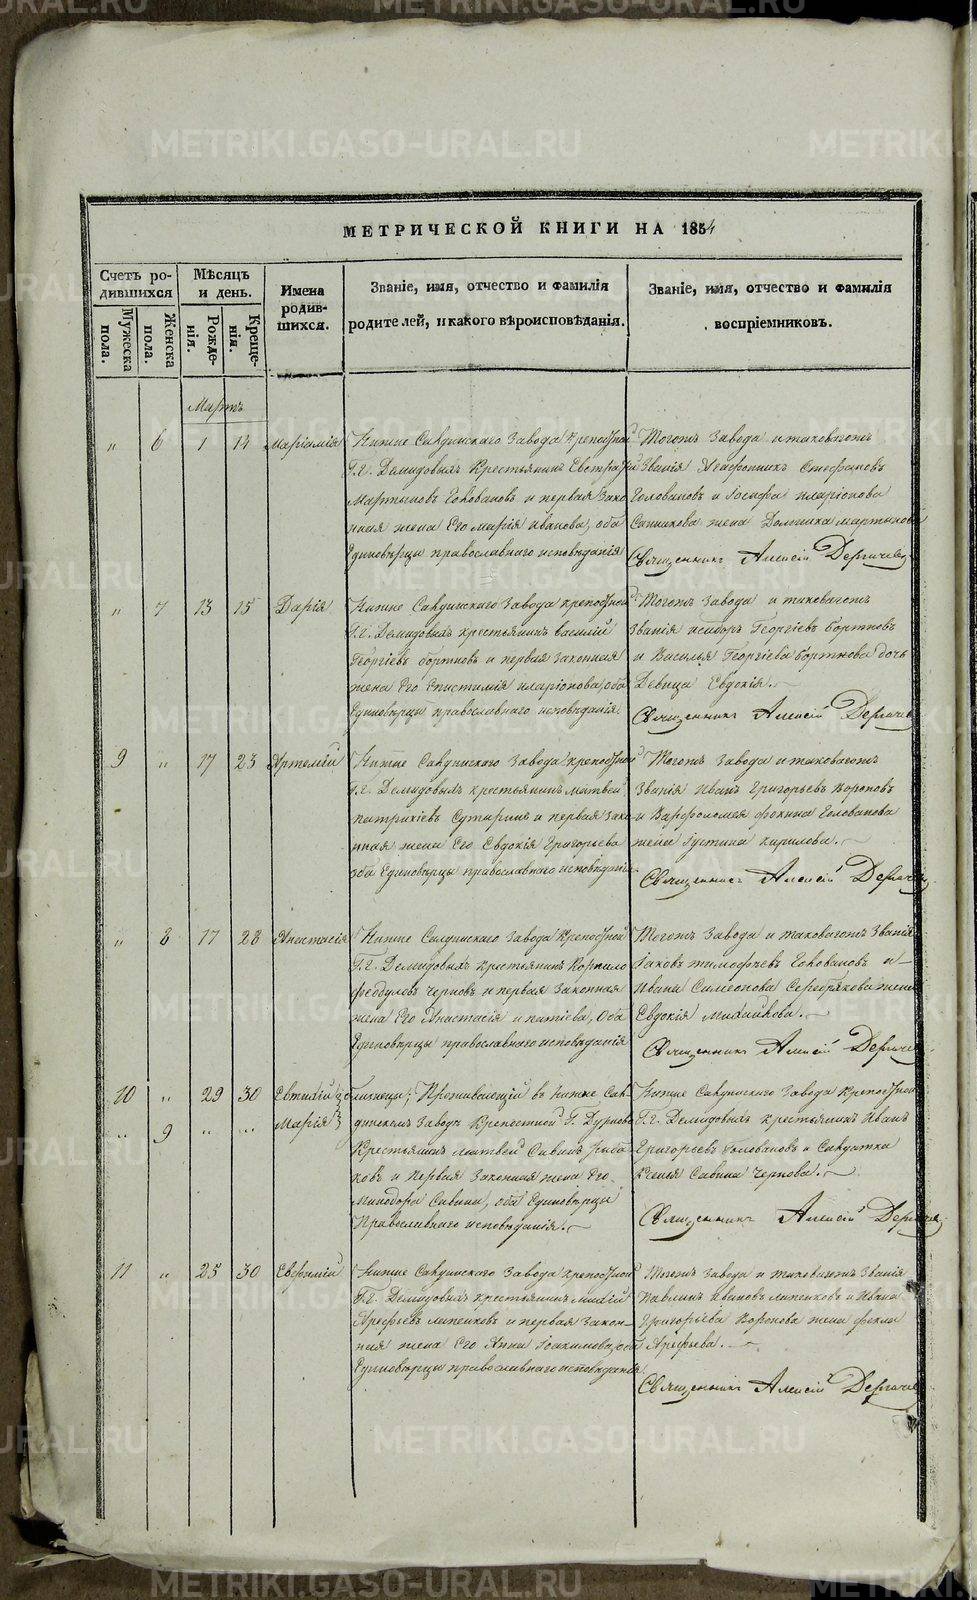 МЕТРИЧЕСКОЙ КНИГИ НА 1854
Счетъ ро-
дившихся
Мужеска
пола.
Женска
пола.
Мѣсяцъ
и день.
Рожде-
нія.
Креще-
нія.
Имена
родив-
шихся.
Званіе, имя, отчество и фамилія
родителей, и какого вѣроисповѣданія.
Званіе, имя, отчество и фамилія
воспріемниковъ.
Мартъ
" 6 1 14 Маріамія
Нижне Салдинскаго Завода крепостной
Г.г. Демидовыхъ Крестьянинъ
Мартыновъ Головановъ и первая зако
нная жена Его Марія Иванова, оба
Единовѣрцы православнаго исповѣданія
Тогожъ Завода и таковагожъ
Званія Агафонникъ Стефановъ
Головановъ и Іосифа Иларіонова
жена Домника Мартынова
Священникъ Алексій Дергачевъ
" 7 13 15 Дарія
Нижне Салдинскаго Завода крепостной
Г.г. Демидовыхъ крестьянинъ Василій
Георгіевъ Бортновъ и первая законная
жена Его Епистимія Иларіонова, оба
Единовѣрцы православнаго исповѣданія
Тогожъ Завода и таковагожъ
Званія Исидоръ Георгіевъ Бортновъ
и Василья Георгіева Бортнова дочь
Девица Евдокія.
Священникъ Алексій Дергачевъ
9 " 17 23 Артемій
Нижне Салдинскаго Завода крепостной
Г.г. Демидовыхъ крестьянинъ Матвей
Патрикіевъ и первая зако
нная жена Его Евдокія Григорьева
оба Единовѣрцы православнаго исповѣданія
Тогожъ Завода и таковагожъ
Званія Иванъ Григорьевъ Вороновъ
и Варфоломея Фокина Голованова
жена Іустина Кирилова.
Священникъ Алексій Дергачевъ
" 8 17 28 Анастасія
Нижне Салдинскаго Завода Крепостной
Г.г. Демидовыхъ Крестьянинъ Корнило
Феодуловъ Черновъ и первая законная
жена Его Анастасія Ипатіева, Оба
Единовѣрцы православнаго исповѣданія
Тогожъ Завода и таковагожъ Званія
Іаковъ Тимофѣевъ Головановъ и
Ивана Симеонова Серебрякова жена
Евдокія Михайлова.
Священникъ Алексій Дергачевъ
10 " 29 30 Евтихій
" 9 " " Марія
близнецы; Проживающій въ Нижне Сал
динскомъ Заводѣ Крепостной Г. Дурново
Крестьянинъ Матвей Савинъ Рыба
ковъ и Первая Законная жена Его
Минодора Савина, оба Единовѣрцы
Православнаго исповѣданія.
Нижне Салдинскаго Завода Крепостной
Г.г. Демидовыхъ крестьянинъ Иванъ
Григорьевъ Головановъ и Салдатка
Ксенья Савина Чернова.
Священникъ Алексій Дергачевъ
11 " 25 30 Евфимій
Нижне Салдинскаго Завода крепостной
Г.г. Демидовыхъ крестьянинъ
Арефьевъ и первая закон
ная жена Его Анна Іоакимова, оба
Единовѣрцы православнаго исповѣданія
Тогожъ Завода и таковагожъ Званія
Павлинъ Ивановъ и Ивана
Григорьева Воронова жена Фекла
Арефьева.
Священникъ Алексій Дергачевъ
METRIKI.GASO-URAL.RU